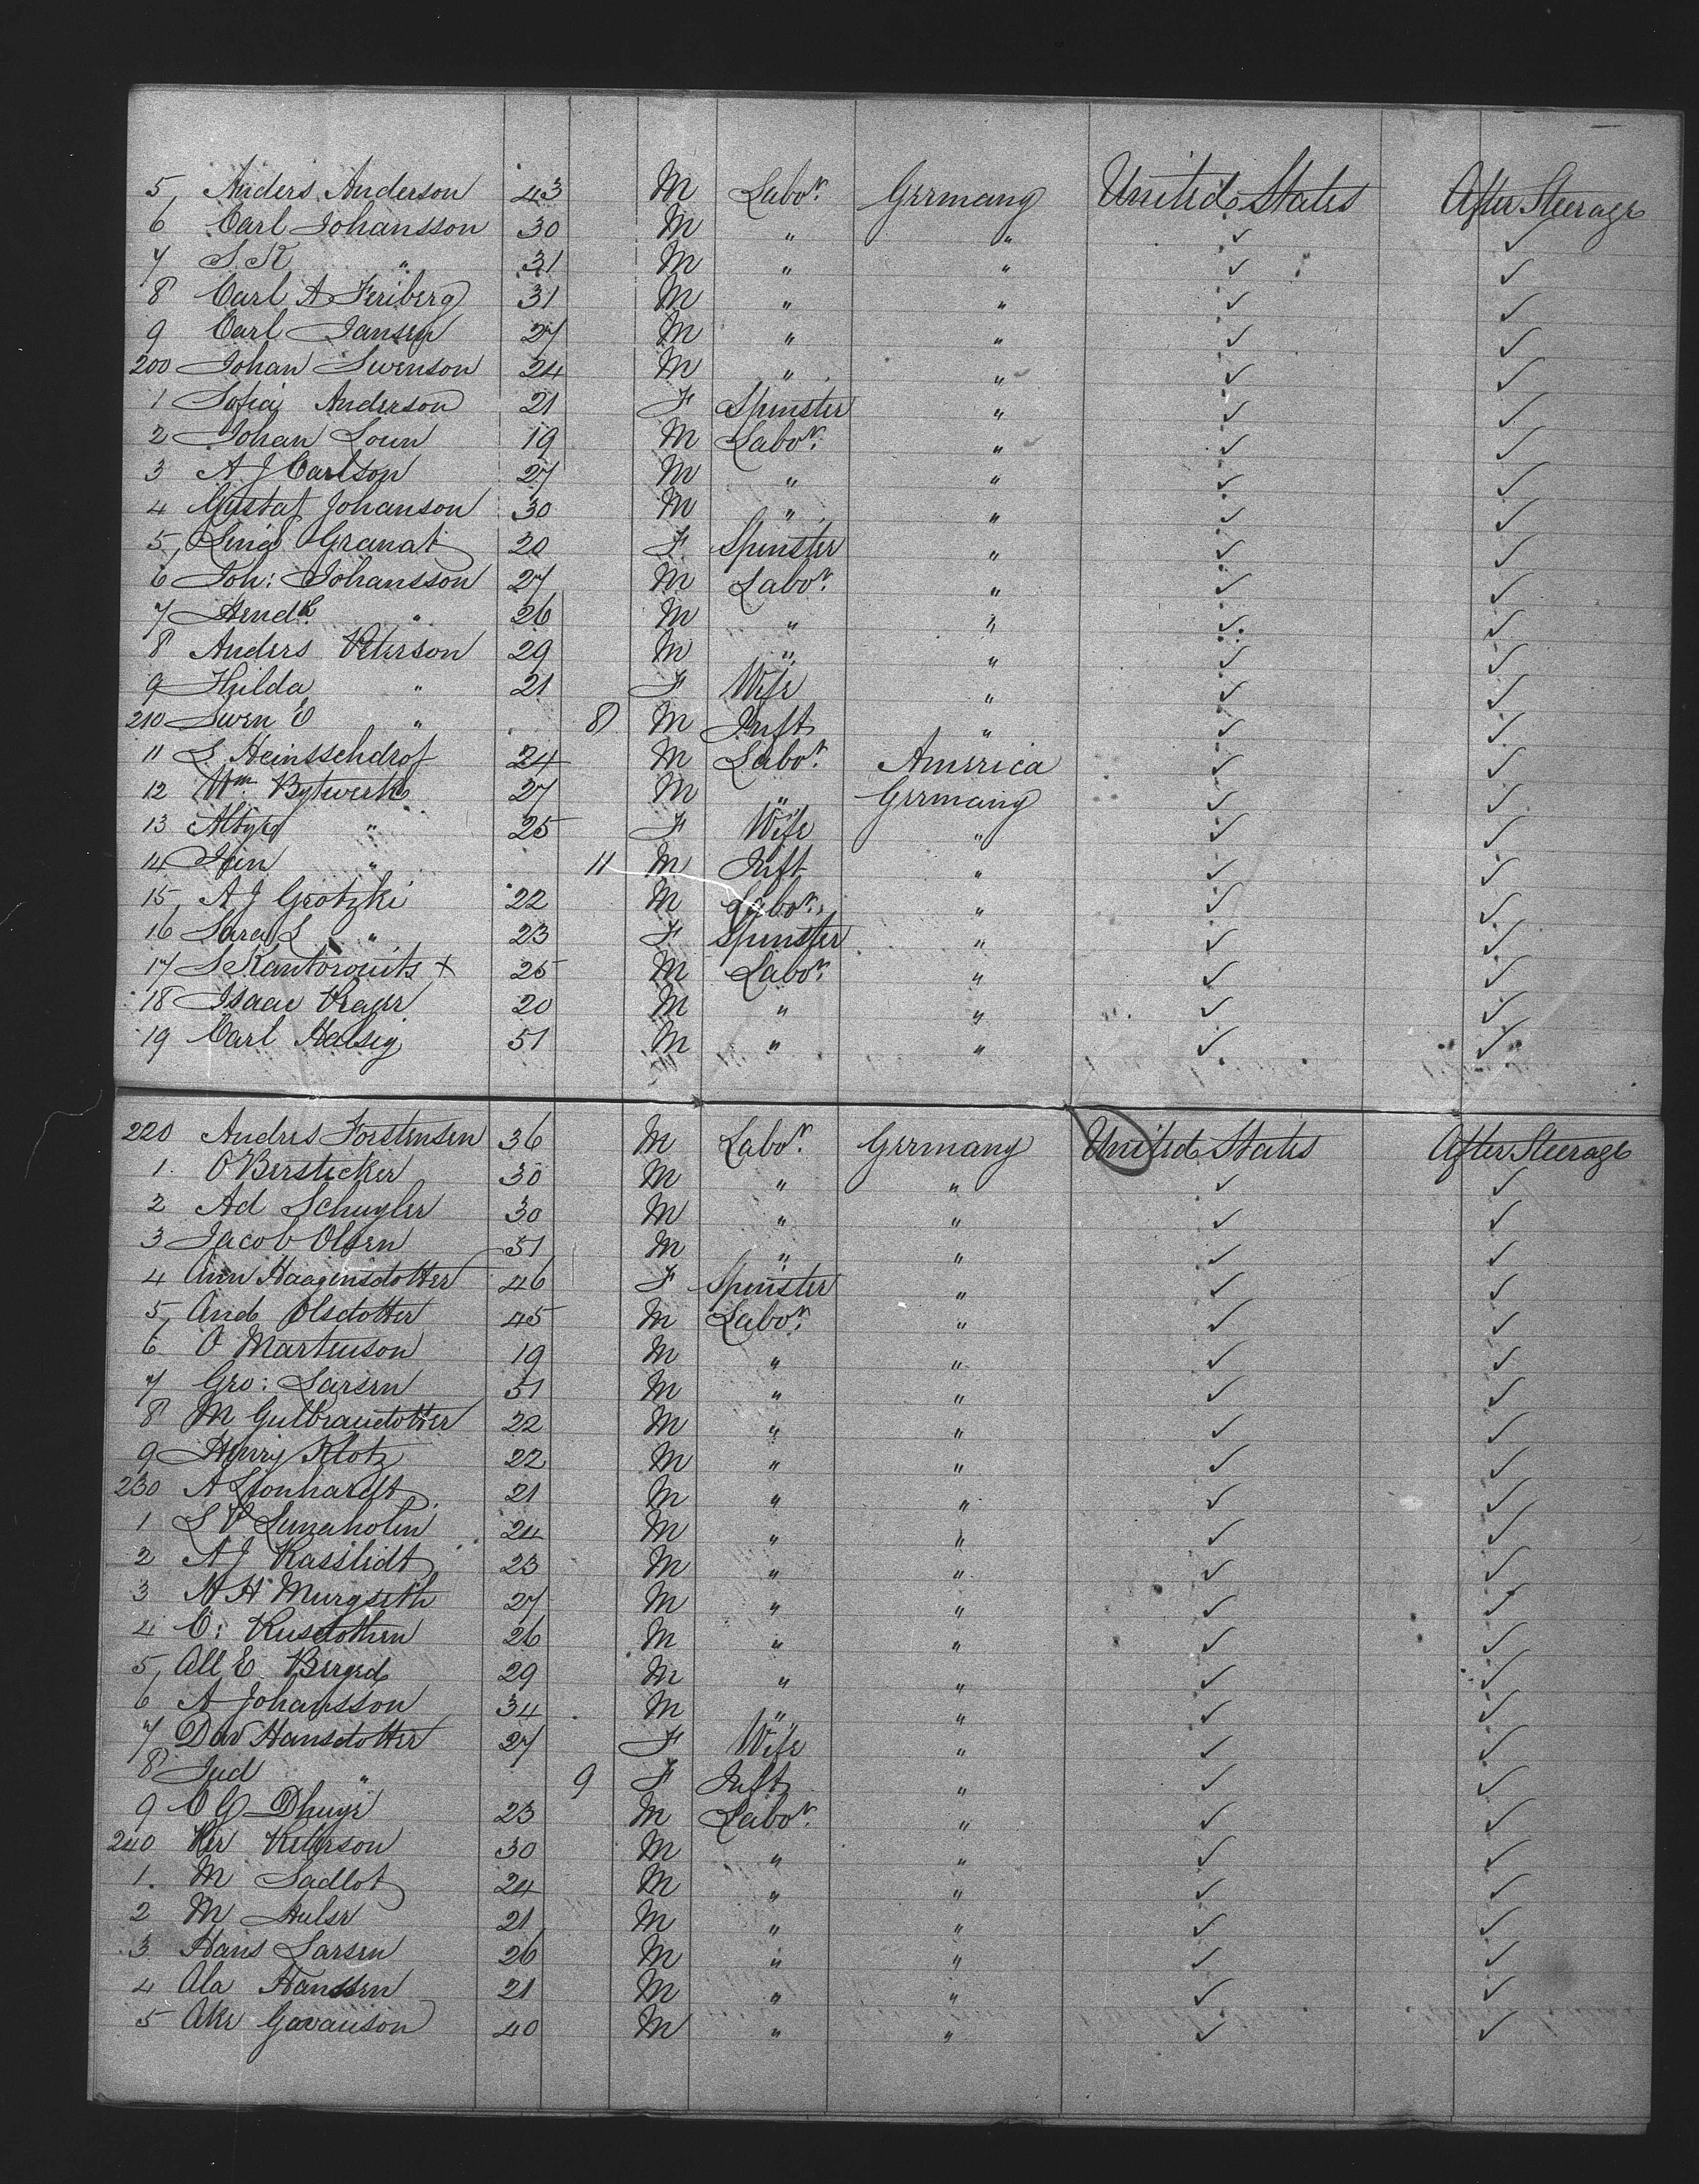 5 Anders Anderson 43 M Labor. Germany United States After Steerage
6 Carl Johansson 30 M " " ✓ ✓
7 S K " 31 M " " ✓ ✓
8 Carl A Feriberg 31 M " " ✓ ✓
9 Carl Jansen 27 M " " ✓ ✓
200 Johan Swenson 24 M " " ✓ ✓
1 Sofia Anderson 21 F Spinster " ✓ ✓
2 Johan Loun 19 M Labor. " ✓ ✓
3 A J Carlson 27 M " " ✓ ✓
4 Gustaf Johanson 30 M " " ✓ ✓
5 Lina Granat 20 F Spinster " ✓ ✓
6 Joh: Johansson 27 M Labor. " ✓ ✓
7 Hendk. " 26 M " " ✓ ✓
8 Anders Peterson 29 M " " ✓ ✓
9 Hilda " 21 F Wife " ✓ ✓
210 Swen E " 8 M Inft " ✓ ✓
11 L Heinsschdrof 24 M Labor. America ✓ ✓
12 Wm. Bytwerk 27 M " Germany ✓ ✓
13 " 25 F Wife " ✓ ✓
14 " 11 M Inft " ✓ ✓
15 A J Grotzki 22 M Labor. " ✓ ✓
16 Sara L " 23 F Spinster " ✓ ✓
17 S Kantorouits + 25 M Labor. " ✓ ✓
18 Isaac Prager 20 M " " ✓ ✓
19 Carl Helsig 51 M " " ✓ ✓
220 Andres Forstensen 36 M Labor. Germany United States After Steerage
1 O Berstecker 30 M " " ✓ ✓
2 Ad Schuyler 30 M " " ✓ ✓
3 Jacob Olsen 51 M " " ✓ ✓
4 Ann Haagensdotter 46 F Spinster " ✓ ✓
5 And Olsdotter 45 M Labor. " ✓ ✓
6 O Martenson 19 M " " ✓ ✓
7 Geo: Larsen 51 M " " ✓ ✓
8 M Gulbrandotter 22 M " " ✓ ✓
9 Henry Klotz 22 M " " ✓ ✓
230 A Leonhardt 21 M " " ✓ ✓
1 L P 24 M " " ✓ ✓
2 A J Kasslidt 23 M " " ✓ ✓
3 H Murgseth 27 M " " ✓ ✓
4 C: 26 M " " ✓ ✓
5 All E. 29 M " " ✓ ✓
6 A Johansson 34 M " " ✓ ✓
7 Dav Hansdotter 27 F Wife " ✓ ✓
8 Jud " 9 F Inft " ✓ ✓
9 C G Dhuye 23 M Labor. " ✓ ✓
240 Per Peterson 30 M " " ✓ ✓
1. M Sadlot 24 M " " ✓ ✓
2 M Hulse 21 M " " ✓ ✓
3 Hans Larsen 26 M " " ✓ ✓
4 Ola Hanssen 21 M " " ✓ ✓
5 Ake Gavanson 40 M " " ✓ ✓